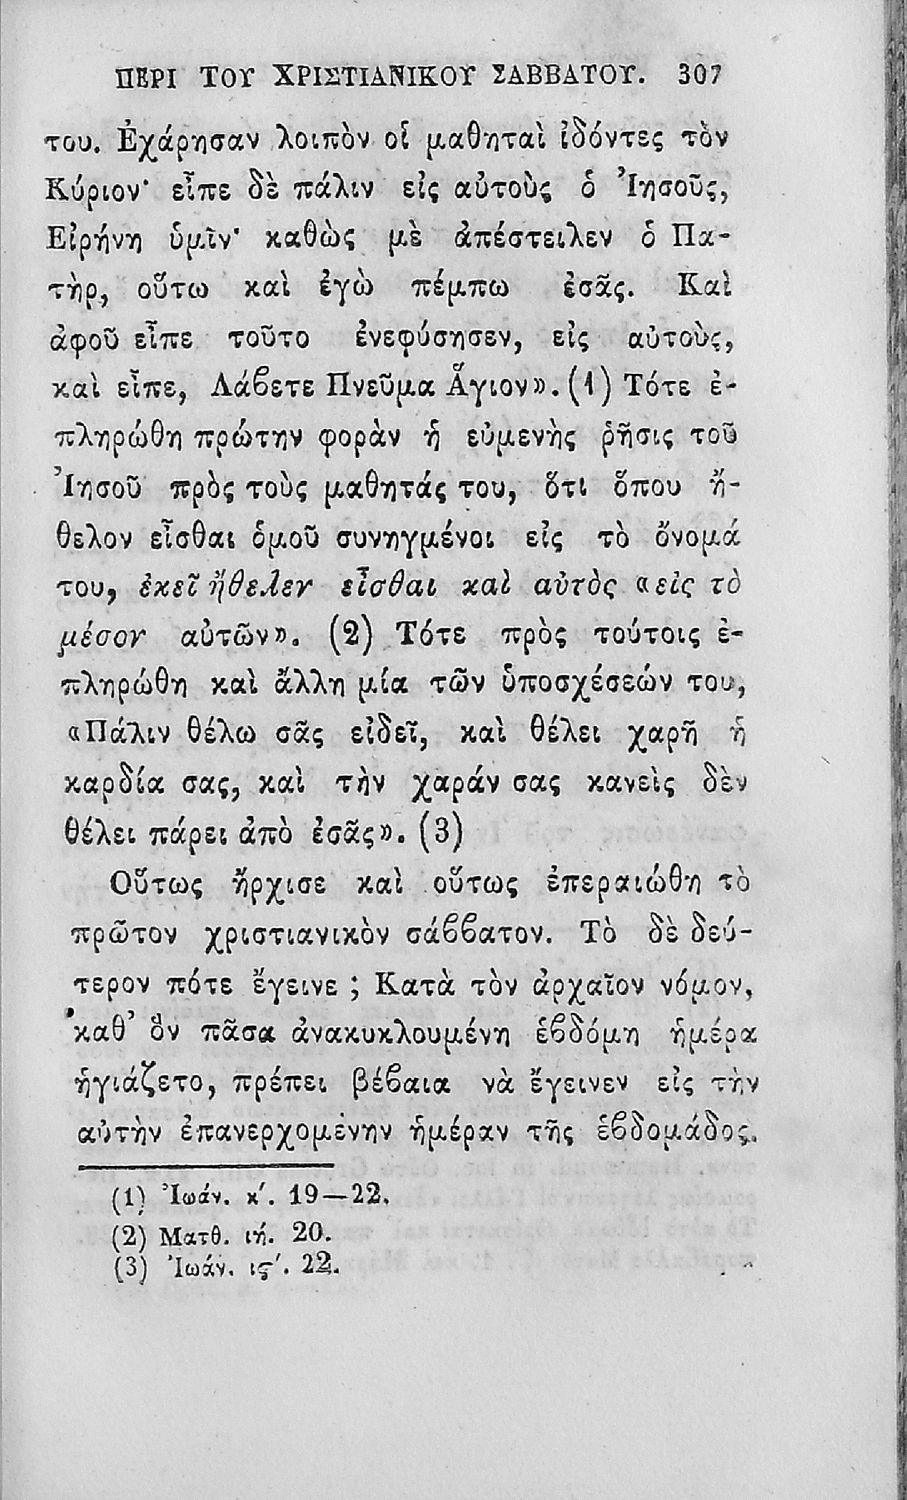 ΠΕΡΙ ΤΟΥ ΧΡΙΣΤΙΑΝΙΚΟΥ ΣΑΒΒΑΤΟΥ. 307
του. Ἐχάρησαν λοιπὸν οἱ μαθηταὶ ἰδόντες τὸν
Κύριον· εἶπε δὲ πάλιν εἰς αὐτοὺς ὁ Ἰησοῦς,
Εἰρήνη ὑμῖν· καθὼς μὲ ἀπέστειλεν ὁ Πα-
τὴρ, οὕτω καὶ ἐγὼ πέμπω ἐσᾶς. Καὶ
ἀφοῦ εἶπε τοῦτο ἐνεφύσησεν, εἰς αὐτοὺς,
καὶ εἶπε, Λάβετε Πνεῦμα Ἅγιον». (1) Τότε ἐ-
πληρώθη πρώτην φορὰν ἡ εὐμενὴς ῥῆσις τοῦ
Ἰησοῦ πρὸς τοὺς μαθητάς του, ὅτι ὅπου ἤ-
θελον εἶσθαι ὁμοῦ συνηγμένοι εἰς τὸ ὄνομά
του, ἐκεῖ ἤθελεν εἶσθαι καὶ αὐτὸς «εἰς τὸ
μέσον αὐτῶν». (2) Τότε πρὸς τούτοις ἐ-
πληρώθη καὶ ἄλλη μία τῶν ὑποσχέσεών του,
«Πάλιν θέλω σᾶς εἰδεῖ, καὶ θέλει χαρῆ ἡ
καρδία σας, καὶ τὴν χαράν σας κανεὶς δὲν
θέλει πάρει ἀπὸ ἐσᾶς». (3)
Οὕτως ἤρχισε καὶ οὕτως ἐπεραιώθη τὸ
πρῶτον χριστιανικὸν σάββατον. Τὸ δὲ δεύ-
τερον πότε ἔγεινε ; Κατὰ τὸν ἀρχαῖον νόμον,
καθ' ὃν πᾶσα ἀνακυκλουμένη ἑβδόμη ἡμέρα
ἡγιάζετο, πρέπει βέβαια νὰ ἔγεινεν εἰς τὴν
αὐτὴν ἐπανερχομένην ἡμέραν τῆς ἑβδομάδος.
(1) Ἰωάν. κ΄. 19—22.
(2) Ματθ. ιή. 20.
(3) Ἰωάν. ις΄. 22.